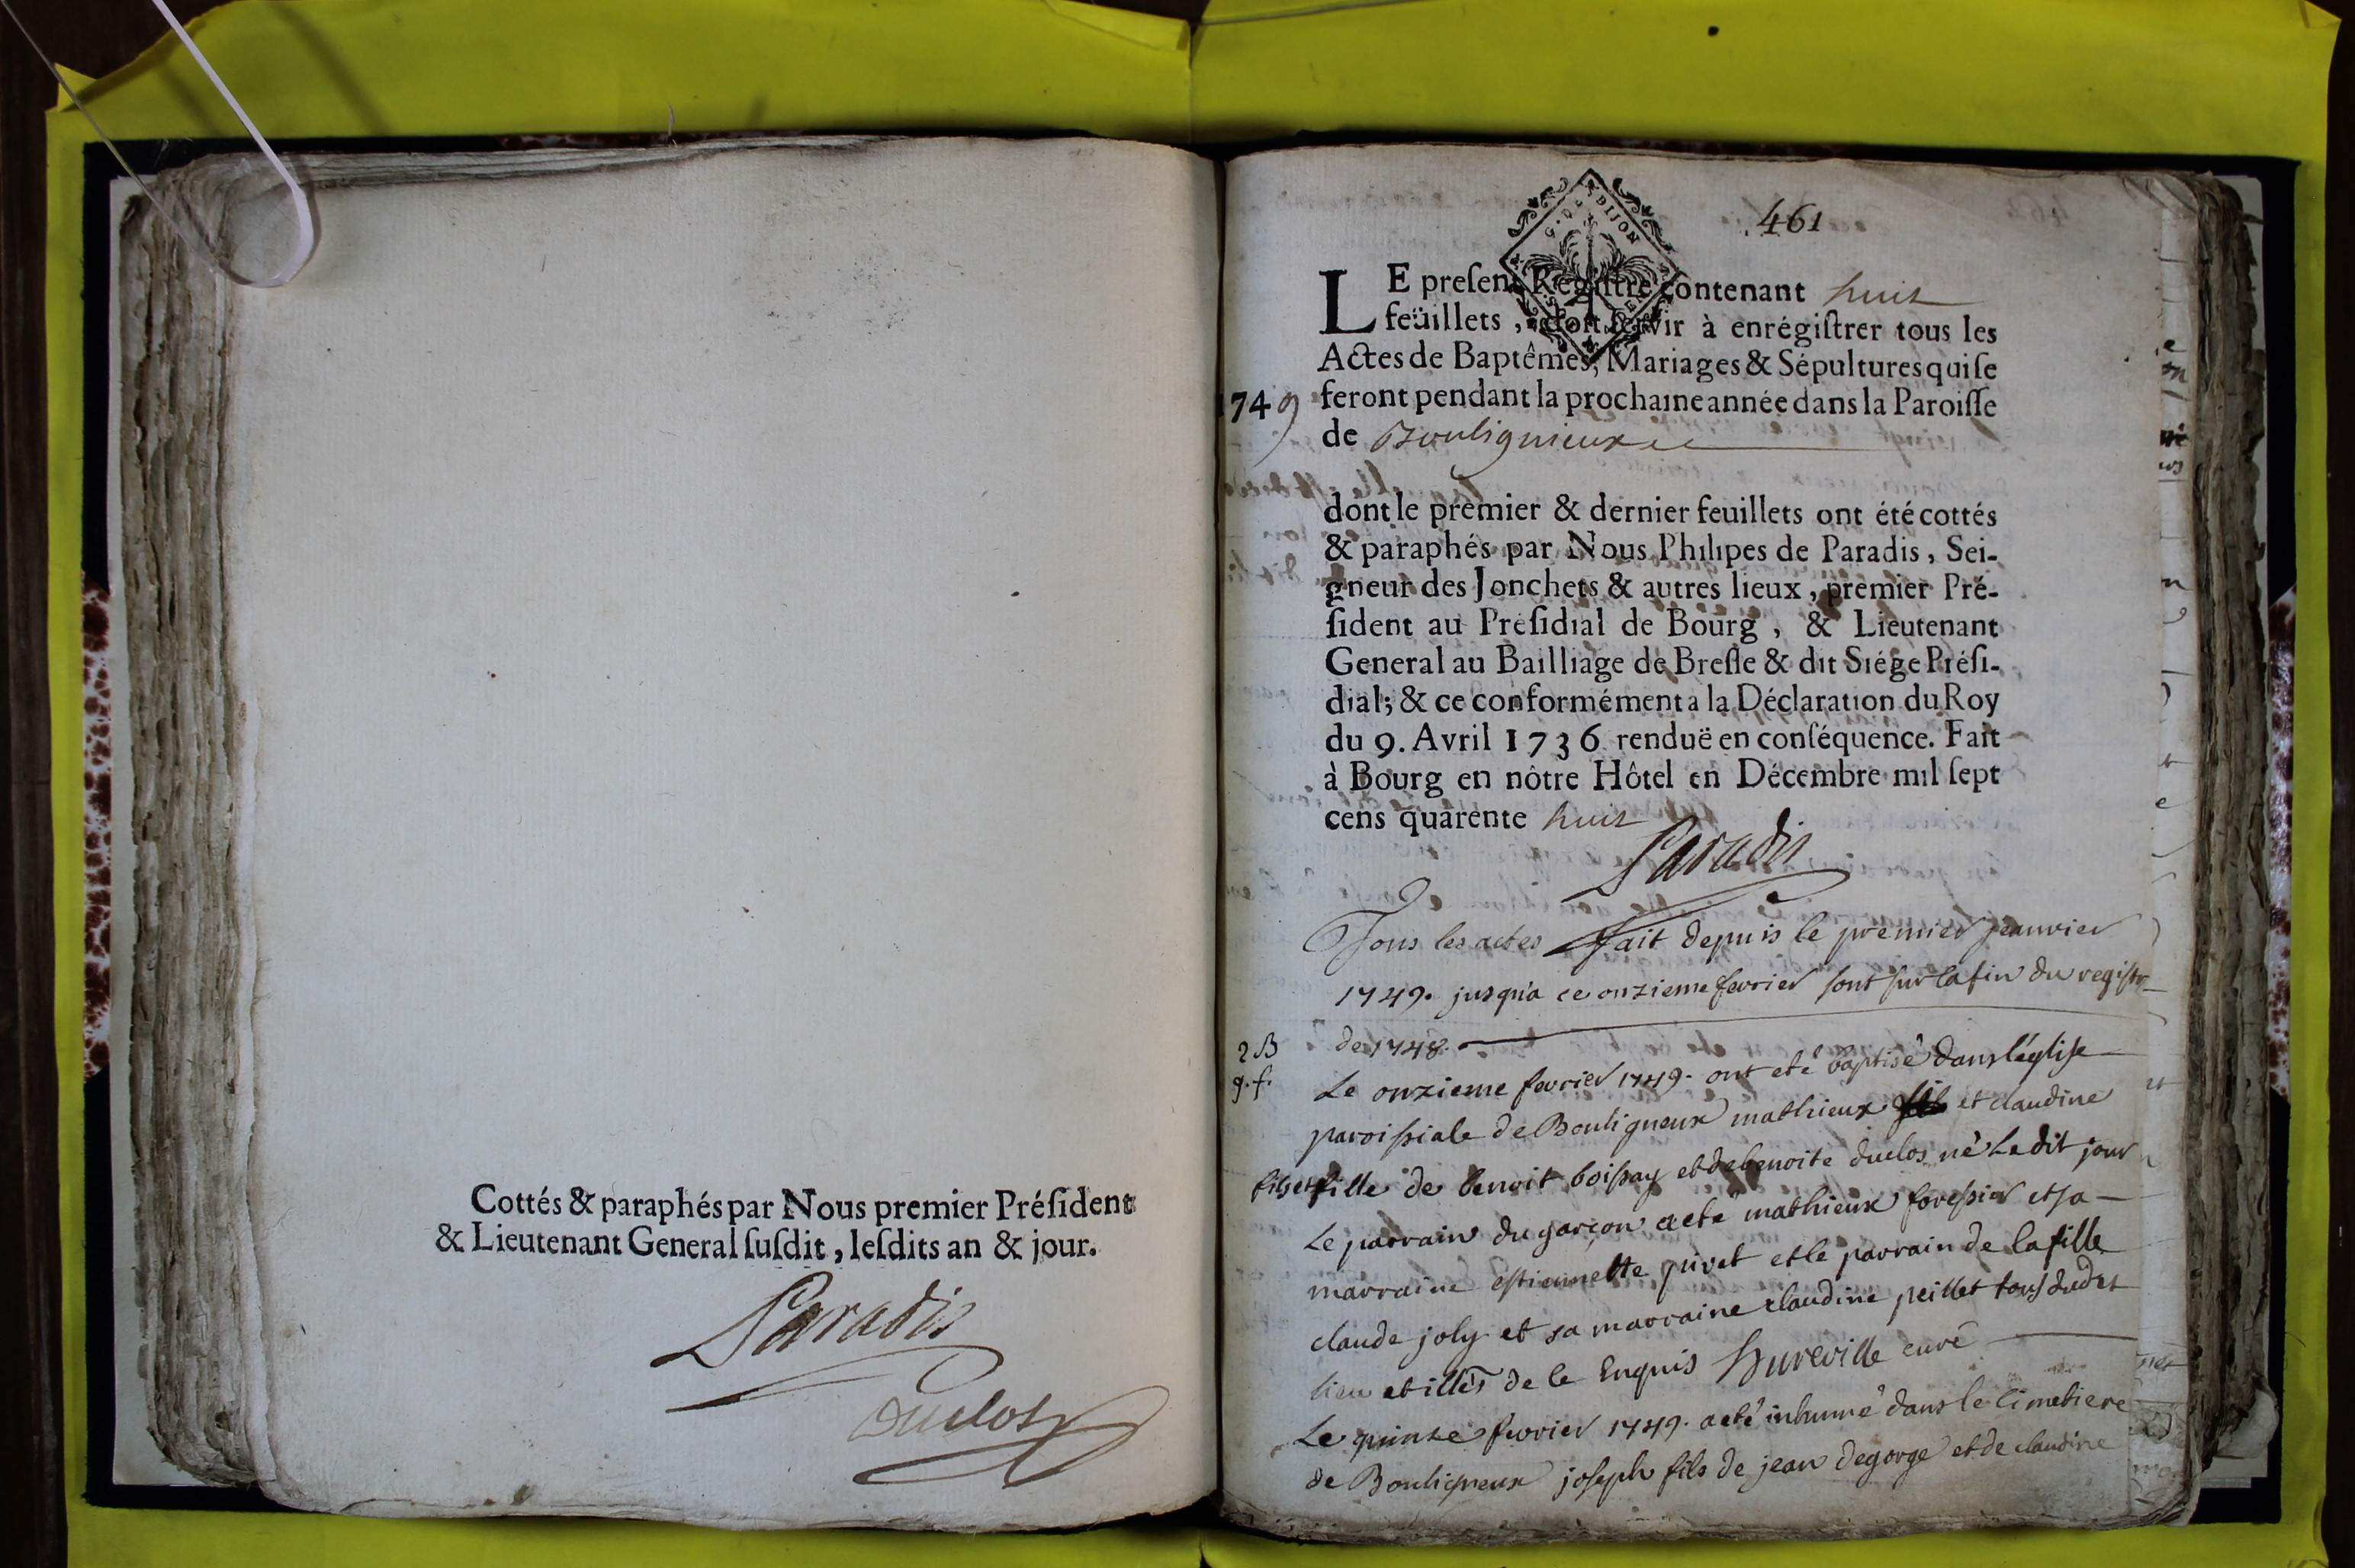 Cottés & paraphés par Nous premier Préſident
& Lieutenant General ſuſdit, leſdits an & jour.
Paradis
Duclos
461
DIJON
LE preſent Régiſtre contenant huit
feüillets, doit ſervir à enrégiſtrer tous les
Actes de Baptêmes, Mariages & Sépultures qui ſe
1749 feront pendant la prochaine année dans la Paroiſſe
de Boulignieux
dont le premier & dernier feuillets ont été cottés
& paraphés par Nous Philipes de Paradis, Sei-
gneur des Jonchets & autres lieux, premier Pré-
ſident au Préſidial de Bourg, & Lieutenant
General au Bailliage de Breſſe & dit Siége Préſi-
dial; & ce conformément a la Déclaration du Roy
du 9. Avril 1736 renduë en conſéquence. Fait
à Bourg en nôtre Hôtel en Décembre mil ſept
cens quarente huit
Paradis
Tous les actes fait depuis le premier jeanvier
1749. jusqu'a ce onzieme fevrier sont sur la fin du registr
de 1748.
2 B
g. f.
Le onzieme fevrier 1749. ont eté baptisé dans l'église
paroissiale de Bouligneux mathieux et claudine
fils et fille de benoit boissay et de benoite duclos né le dit jour
Le parrain du garçon a eté mathieux foressier et sa
marraine estiennette pivet et le parrain de la fille
claude joly et sa marraine claudine peillet tous dudit
lieu et illés de ce Enquis Hureville curé
Le quinze fevrier 1749. a eté inhumé dans le Cimetiere
de Bouligneux joseph fils de jean degorge et de claudine